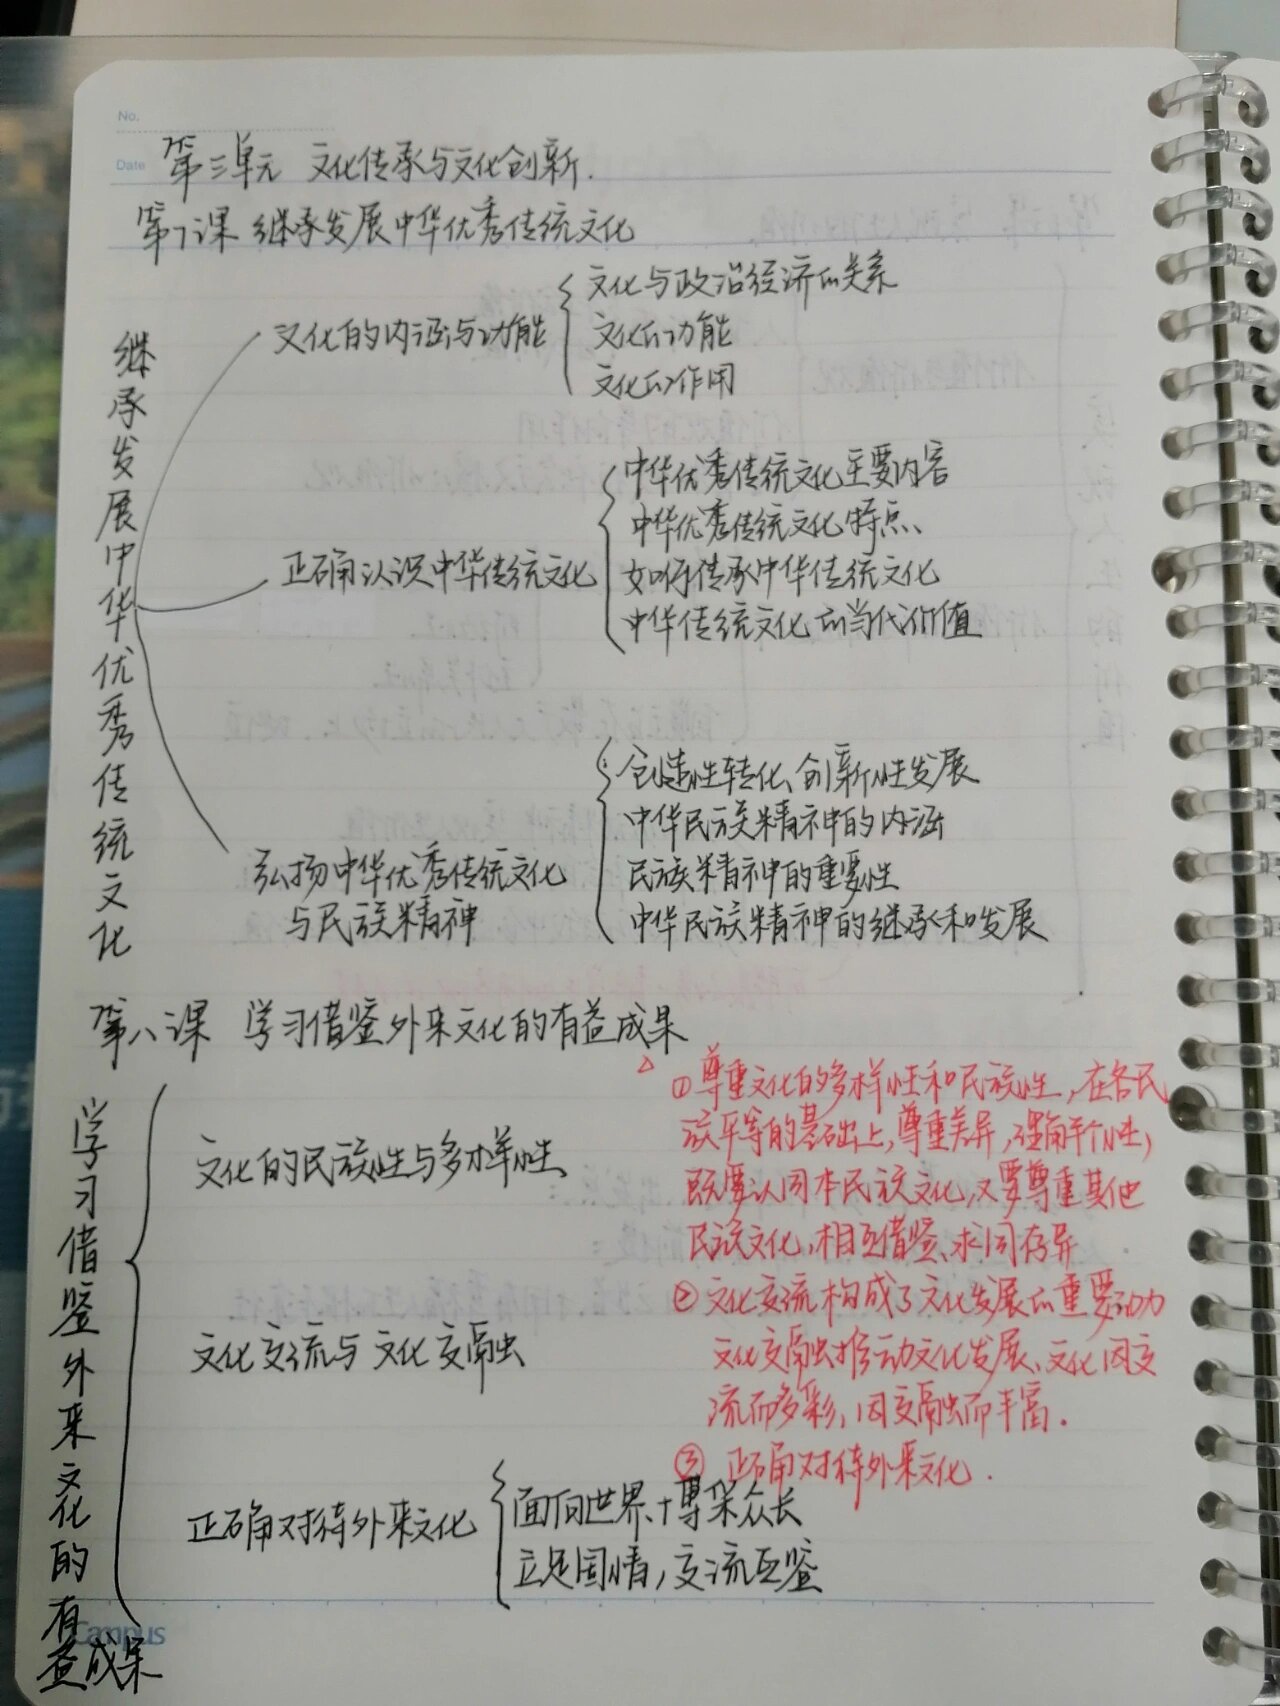 No.
Date
第三单元 文化传承与文化创新.
第7课 继承发展中华优秀传统文化
继承发展中华优秀传统文化
文化的内涵与功能
文化与政治经济的关系
文化的功能
文化的作用
正确认识中华传统文化
中华优秀传统文化主要内容
中华优秀传统文化特点、
如何传承中华传统文化
中华传统文化的当代价值
弘扬中华优秀传统文化
与民族精神
创造性转化、创新性发展
中华民族精神的内涵
民族精神的重要性
中华民族精神的继承和发展
第八课 学习借鉴外来文化的有益成果
学习借鉴外来文化的有益成果
文化的民族性与多样性、
文化交流与文化交融
正确对待外来文化
面向世界、博采众长
立足国情,交流互鉴
①尊重文化的多样性和民族性,在各民
族平等的基础上,尊重差异,理解个性,
既要认同本民族文化,又要尊重其他
民族文化,相互借鉴、求同存异
②文化交流构成了文化发展的重要动力
文化交融推动文化发展、文化因交
流而多彩,因交融而丰富.
③ 正确对待外来文化.
Campus